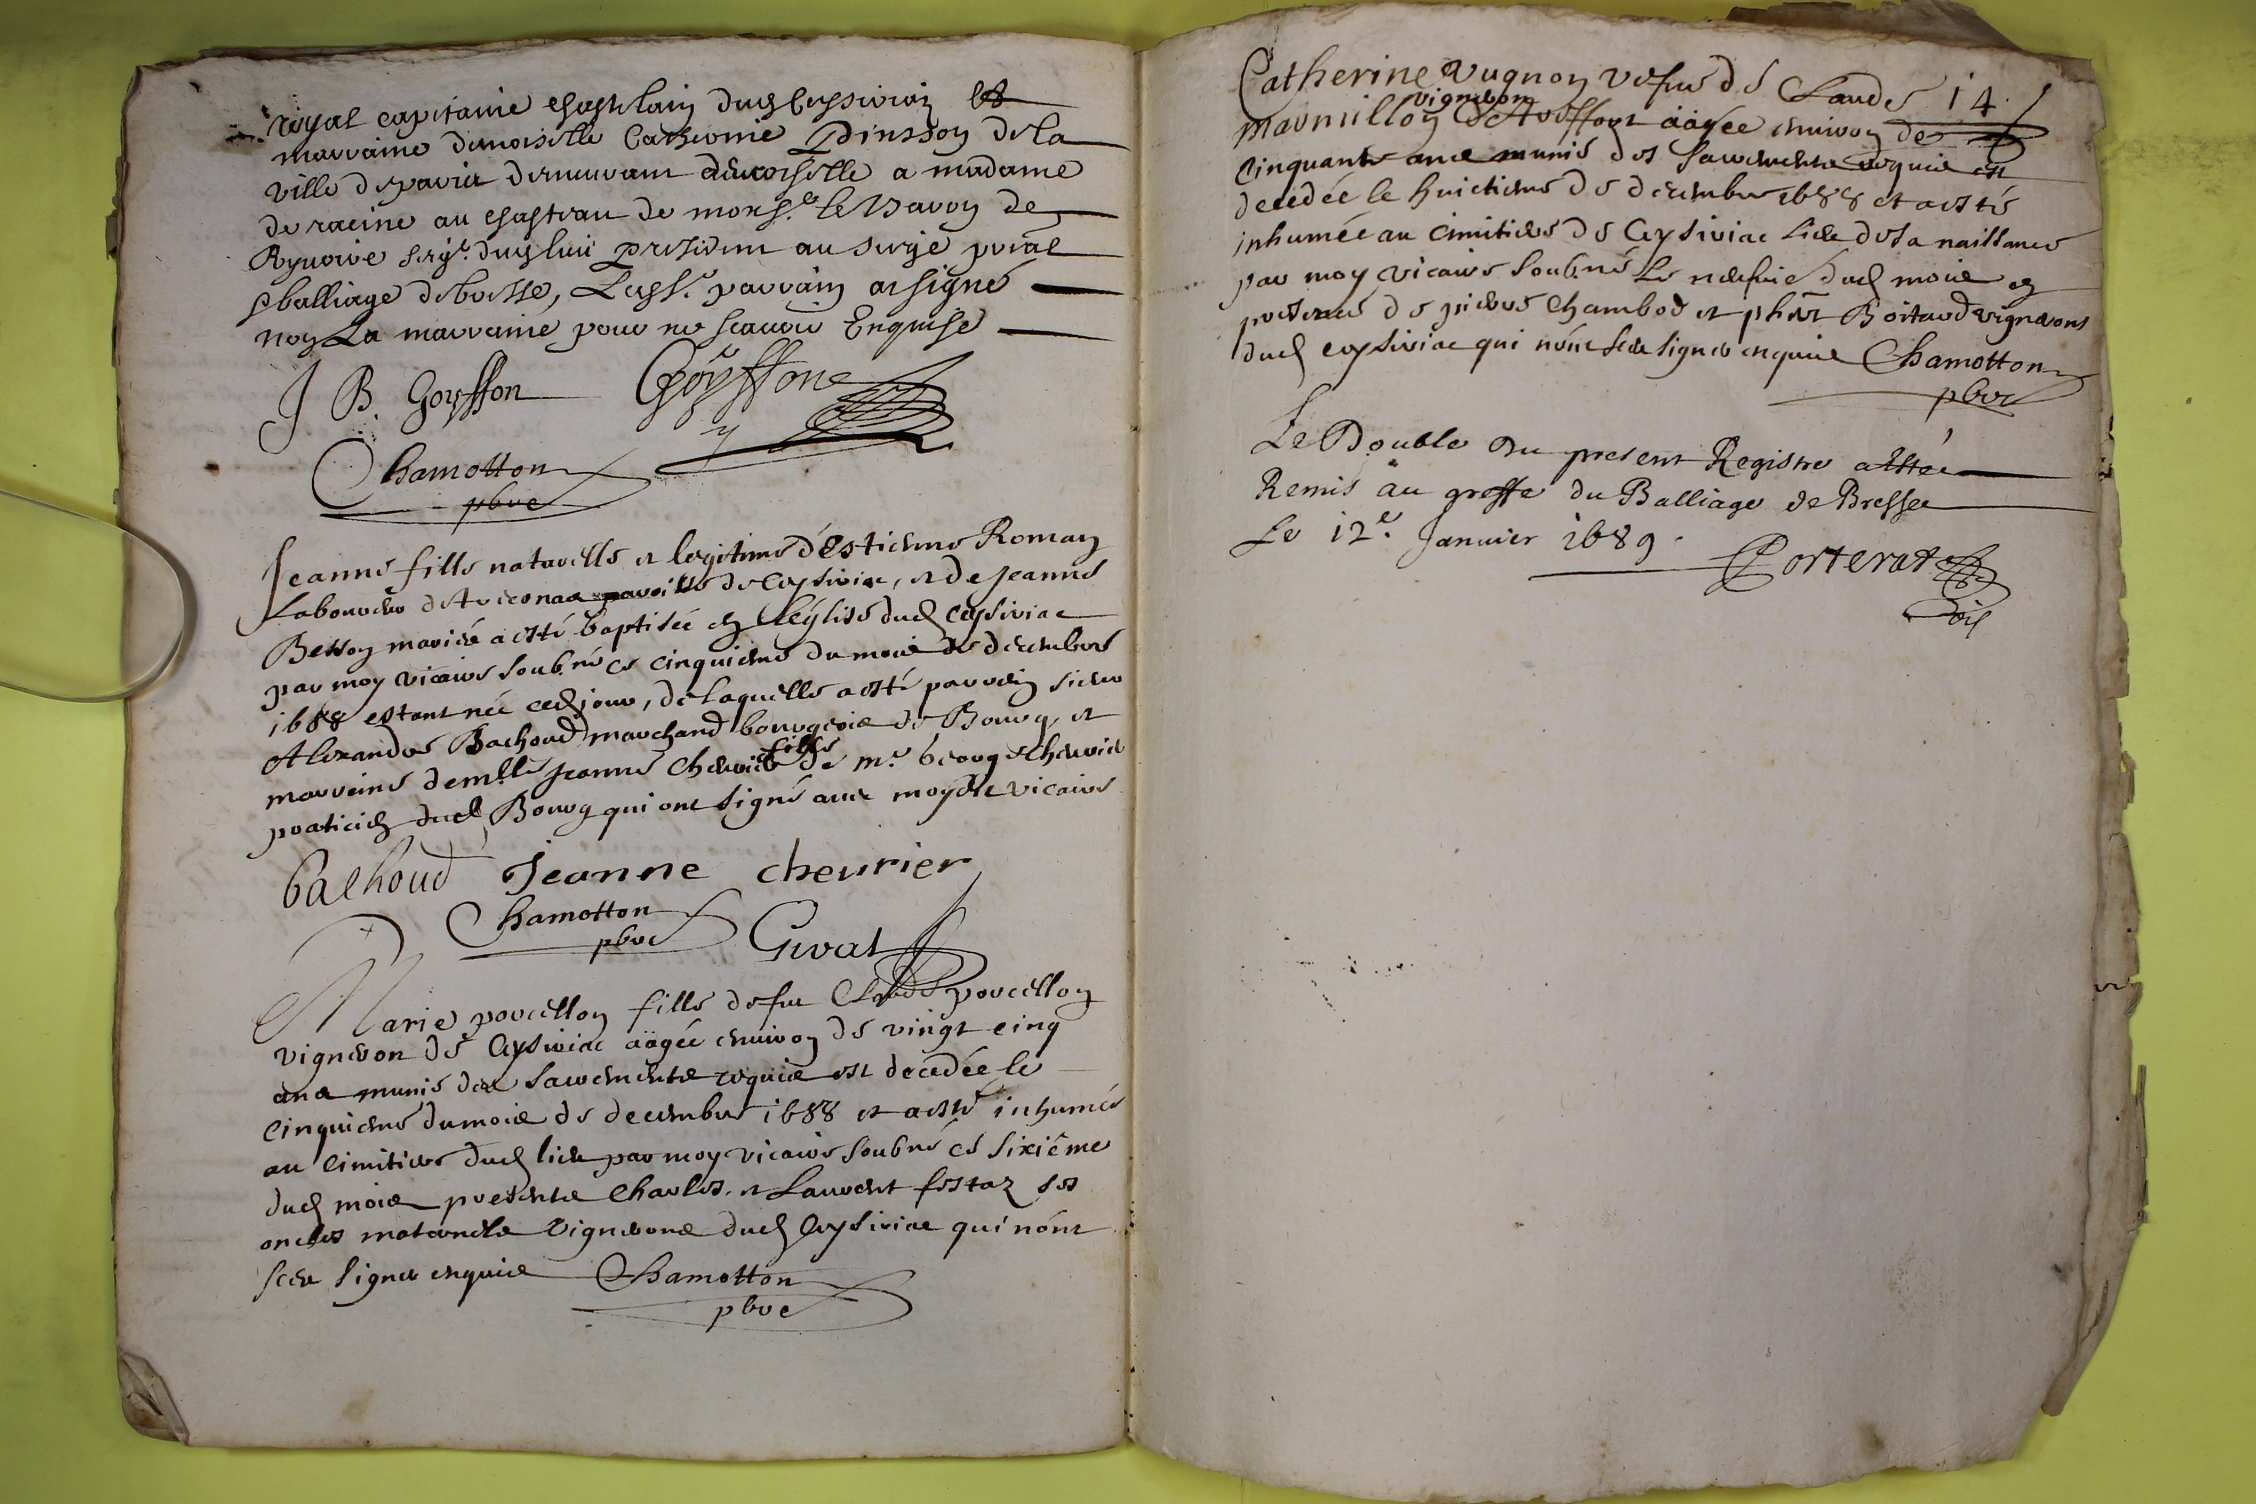 royal capitaine chastelain dud Ceysiria et
marraine demoiselle Catherine Dinsson de la
ville de paris demeurant a madame
de racine au chasteau de mons.r le Baron de
Seig.r dud lieu president au siege
balliage de bresse, Led S.r parrain a signé
non La marraine pour ne scavoir Enquise
J B. Goyffon Goyffone
Chamotton
pbre
Jeanne fille naturelle et legitime d'Estienne Roman
Laboureur paroisse de Ceysiria, et de Jeanne
Besson mariée a esté baptisée en l'eglise dud Ceysiria
par moy vicaire soubné ce cinquieme du mois de decembre
1688 estant née ced jour, de laquelle a esté parrein sieur
Alexandre Bachoud marchand bourgeois de Bourg, et
marreine dem.lle Jeanne Chevrier fille de m.e Chevrier
praticien dud Bourg qui ont signé avec moyd vicaire
bachoud Jeanne cheurier
Chamotton
pbre Givat
Marie porcellon fille de feu Claude porcellon
vigneron de Ceysiria aagée environ de vingt cinq
ans munie des sacrements requis est decedée le
cinquieme du mois de decembre 1688 et a esté inhumée
au cimitiere dud lieu par moy vicaire soubné ce sixiême
dud mois presents Charles et Laurent festaz ses
oncles maternels vignerons dud Ceysiria qui nónt
sceu signer enquis Chamotton
pbre
14.
Catherine vugnon vefve de Claude
vigneron
marmillon aagée environ de
cinquante ans munie des sacrements requis est
decedée le huictieme de decembre 1688 et a esté
inhumée au cimitiere de Ceysiria lieu de sa naissance
par moy vicaire soubné le neufvie dud mois en
presence de pierre Chambod et phbert Boitard vignerons
dud Ceysiria qui nónt sceu signer enquis Chamotton
pbre
Le Double du present Registre a Esté
Remis au greffe du Balliage de Bresse
Le 12.e Janvier 1689.
Porterat